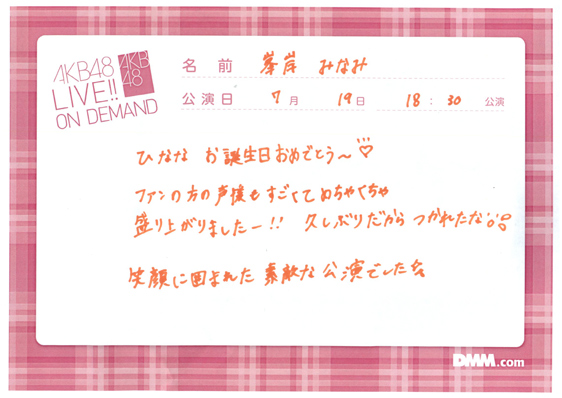 AKB48
LIVE!!
ON DEMAND
AKB
48
名前 峯岸 みなみ
公演日 7月 19日 18:30 公演
ひなな お誕生日おめでとう〜♡
ファンの方の声援もすごくてめちゃくちゃ
盛り上がりましたー!! 久しぶりだから つかれたな
笑顔に囲まれた 素敵な公演でした☆
DMM.com